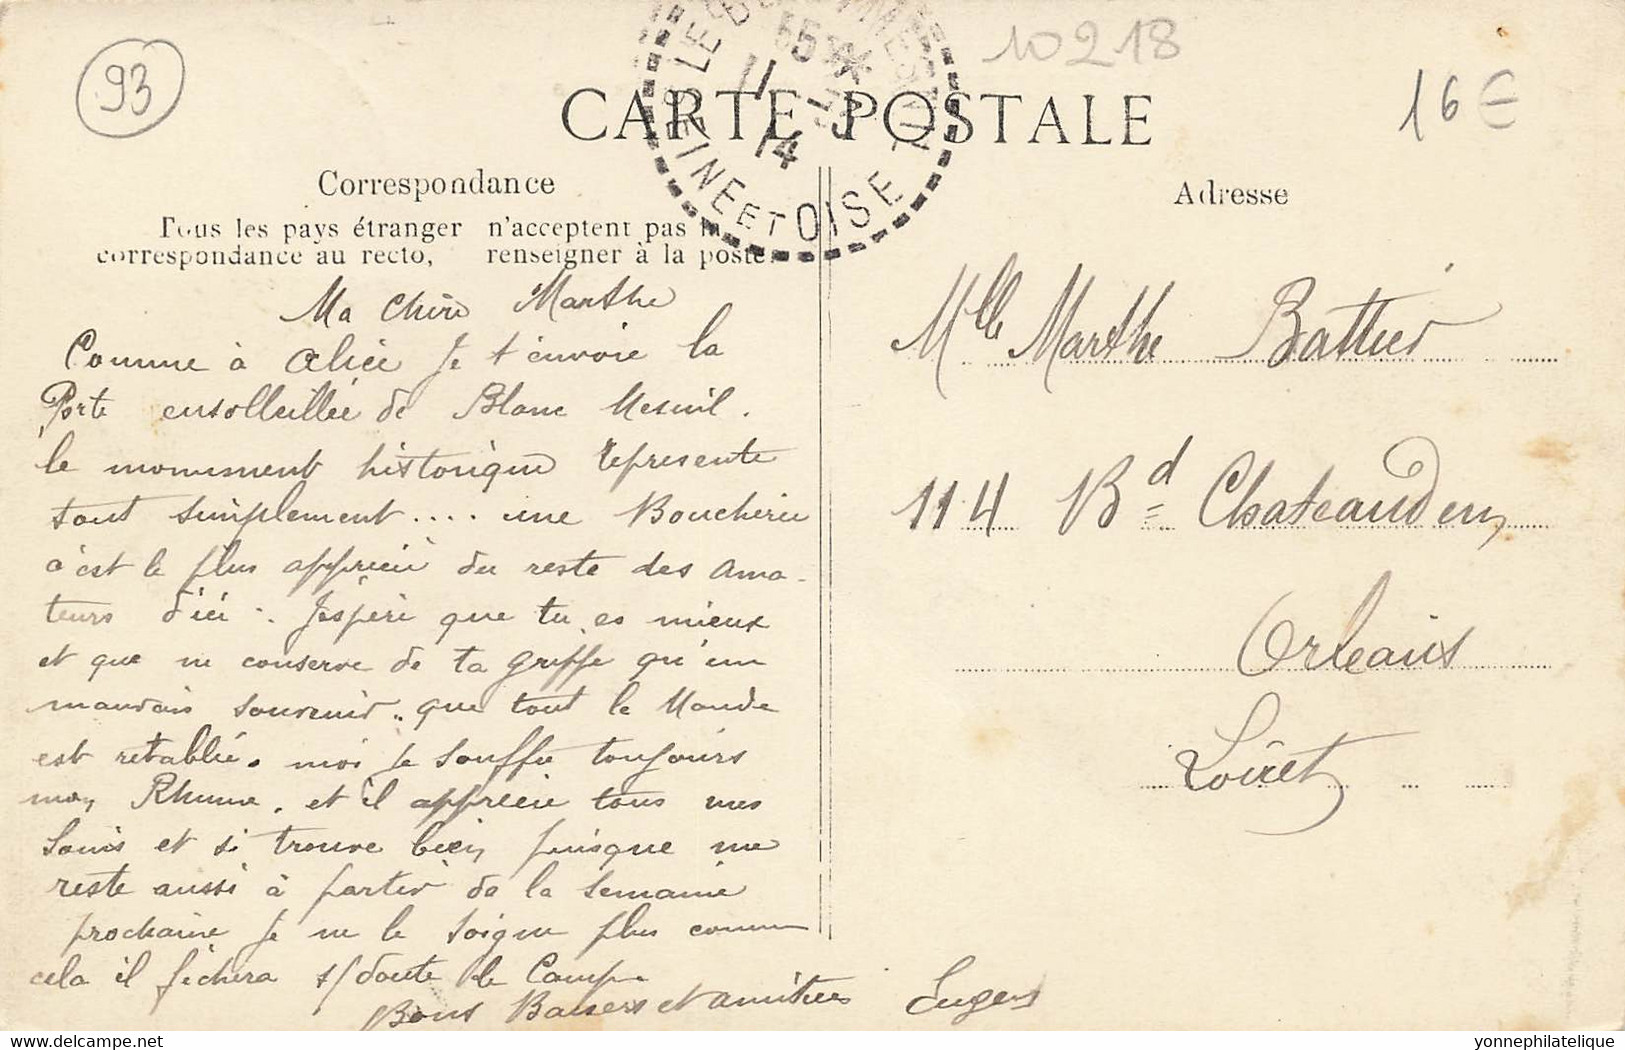 93
10218
16€
CARTE POSTALE
Correspondance
Tous les pays étranger n'acceptent pas la
correspondance au recto, renseigner à la poste.
Adresse
LE B MESNIL
SEINE ET OISE
15 *
11
14
Ma Chère Marthe
Comme à Alice je t'envoie la
Porte ensolleillée de Blanc Mesnil.
le monument historique représente
tout simplement.... une Boucherie
c'est le plus apprécié du reste des ama-
teurs d'ici. J'espère que tu es mieux
et que ne conserve de ta griffe qu'un
mauvais souvenir.. que tout le Monde
est retablie. moi je souffre toujours
mon Rhume. et il apprécie tous mes
soins et si trouve bien puisque me
reste aussi à partir de la semaine
prochaine je ne le soigne plus comme
cela il fichera s/ doute le Camp.
Bons Baisers et amitiés Eugens
Mlle Marthe Battier
114 Bd Chateaudun
Orleans
Loiret
www.yonnephilatelique